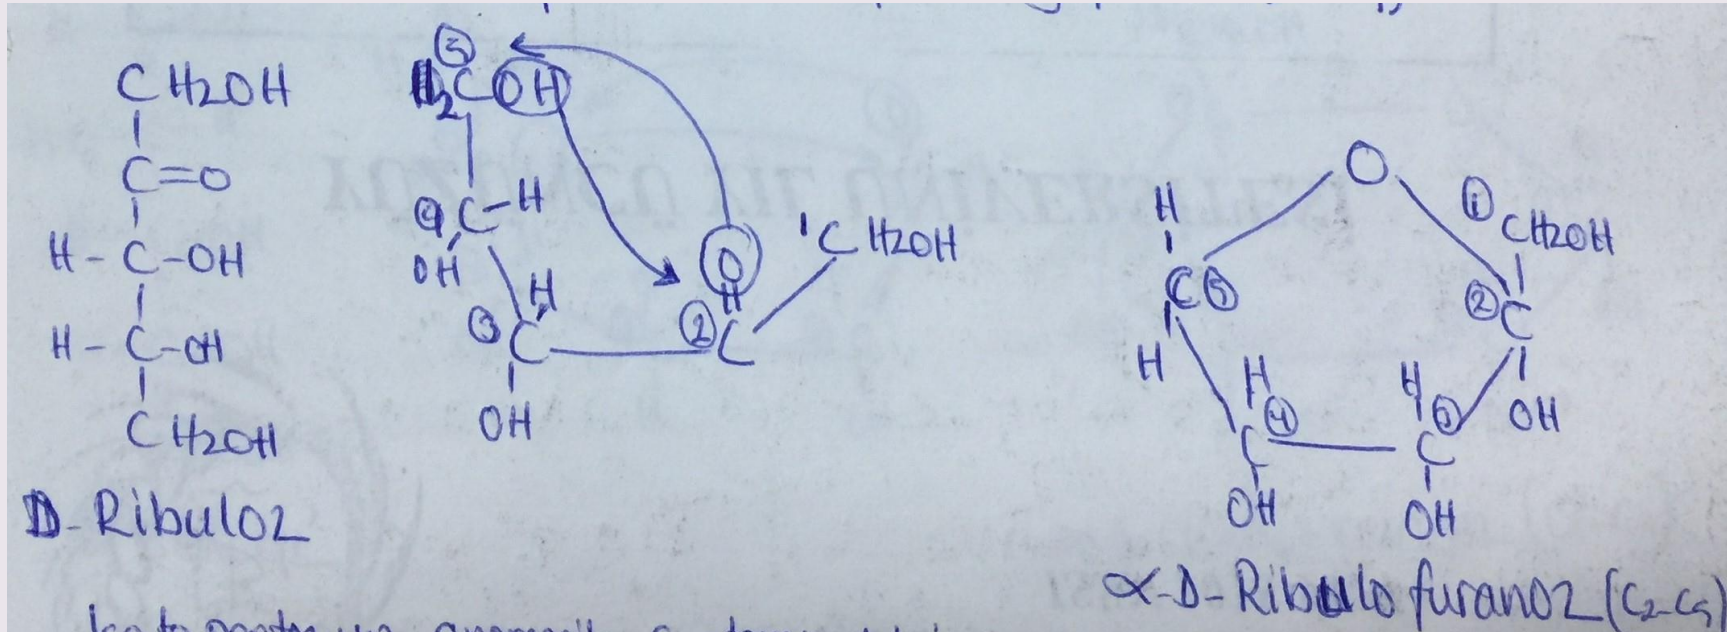 CH2OH
C=O
H-C-OH
H-C-OH
CH2OH
D-Ribuloz
5
H2C OH
4 C-H
OH
H
3 C
OH
O
2 C
1 CH2OH
O
H
C 5
H
1
CH2OH
2 C
OH
H
4
C
OH
H
3
C
OH
α-D-Ribulofuranoz (C2-C5)